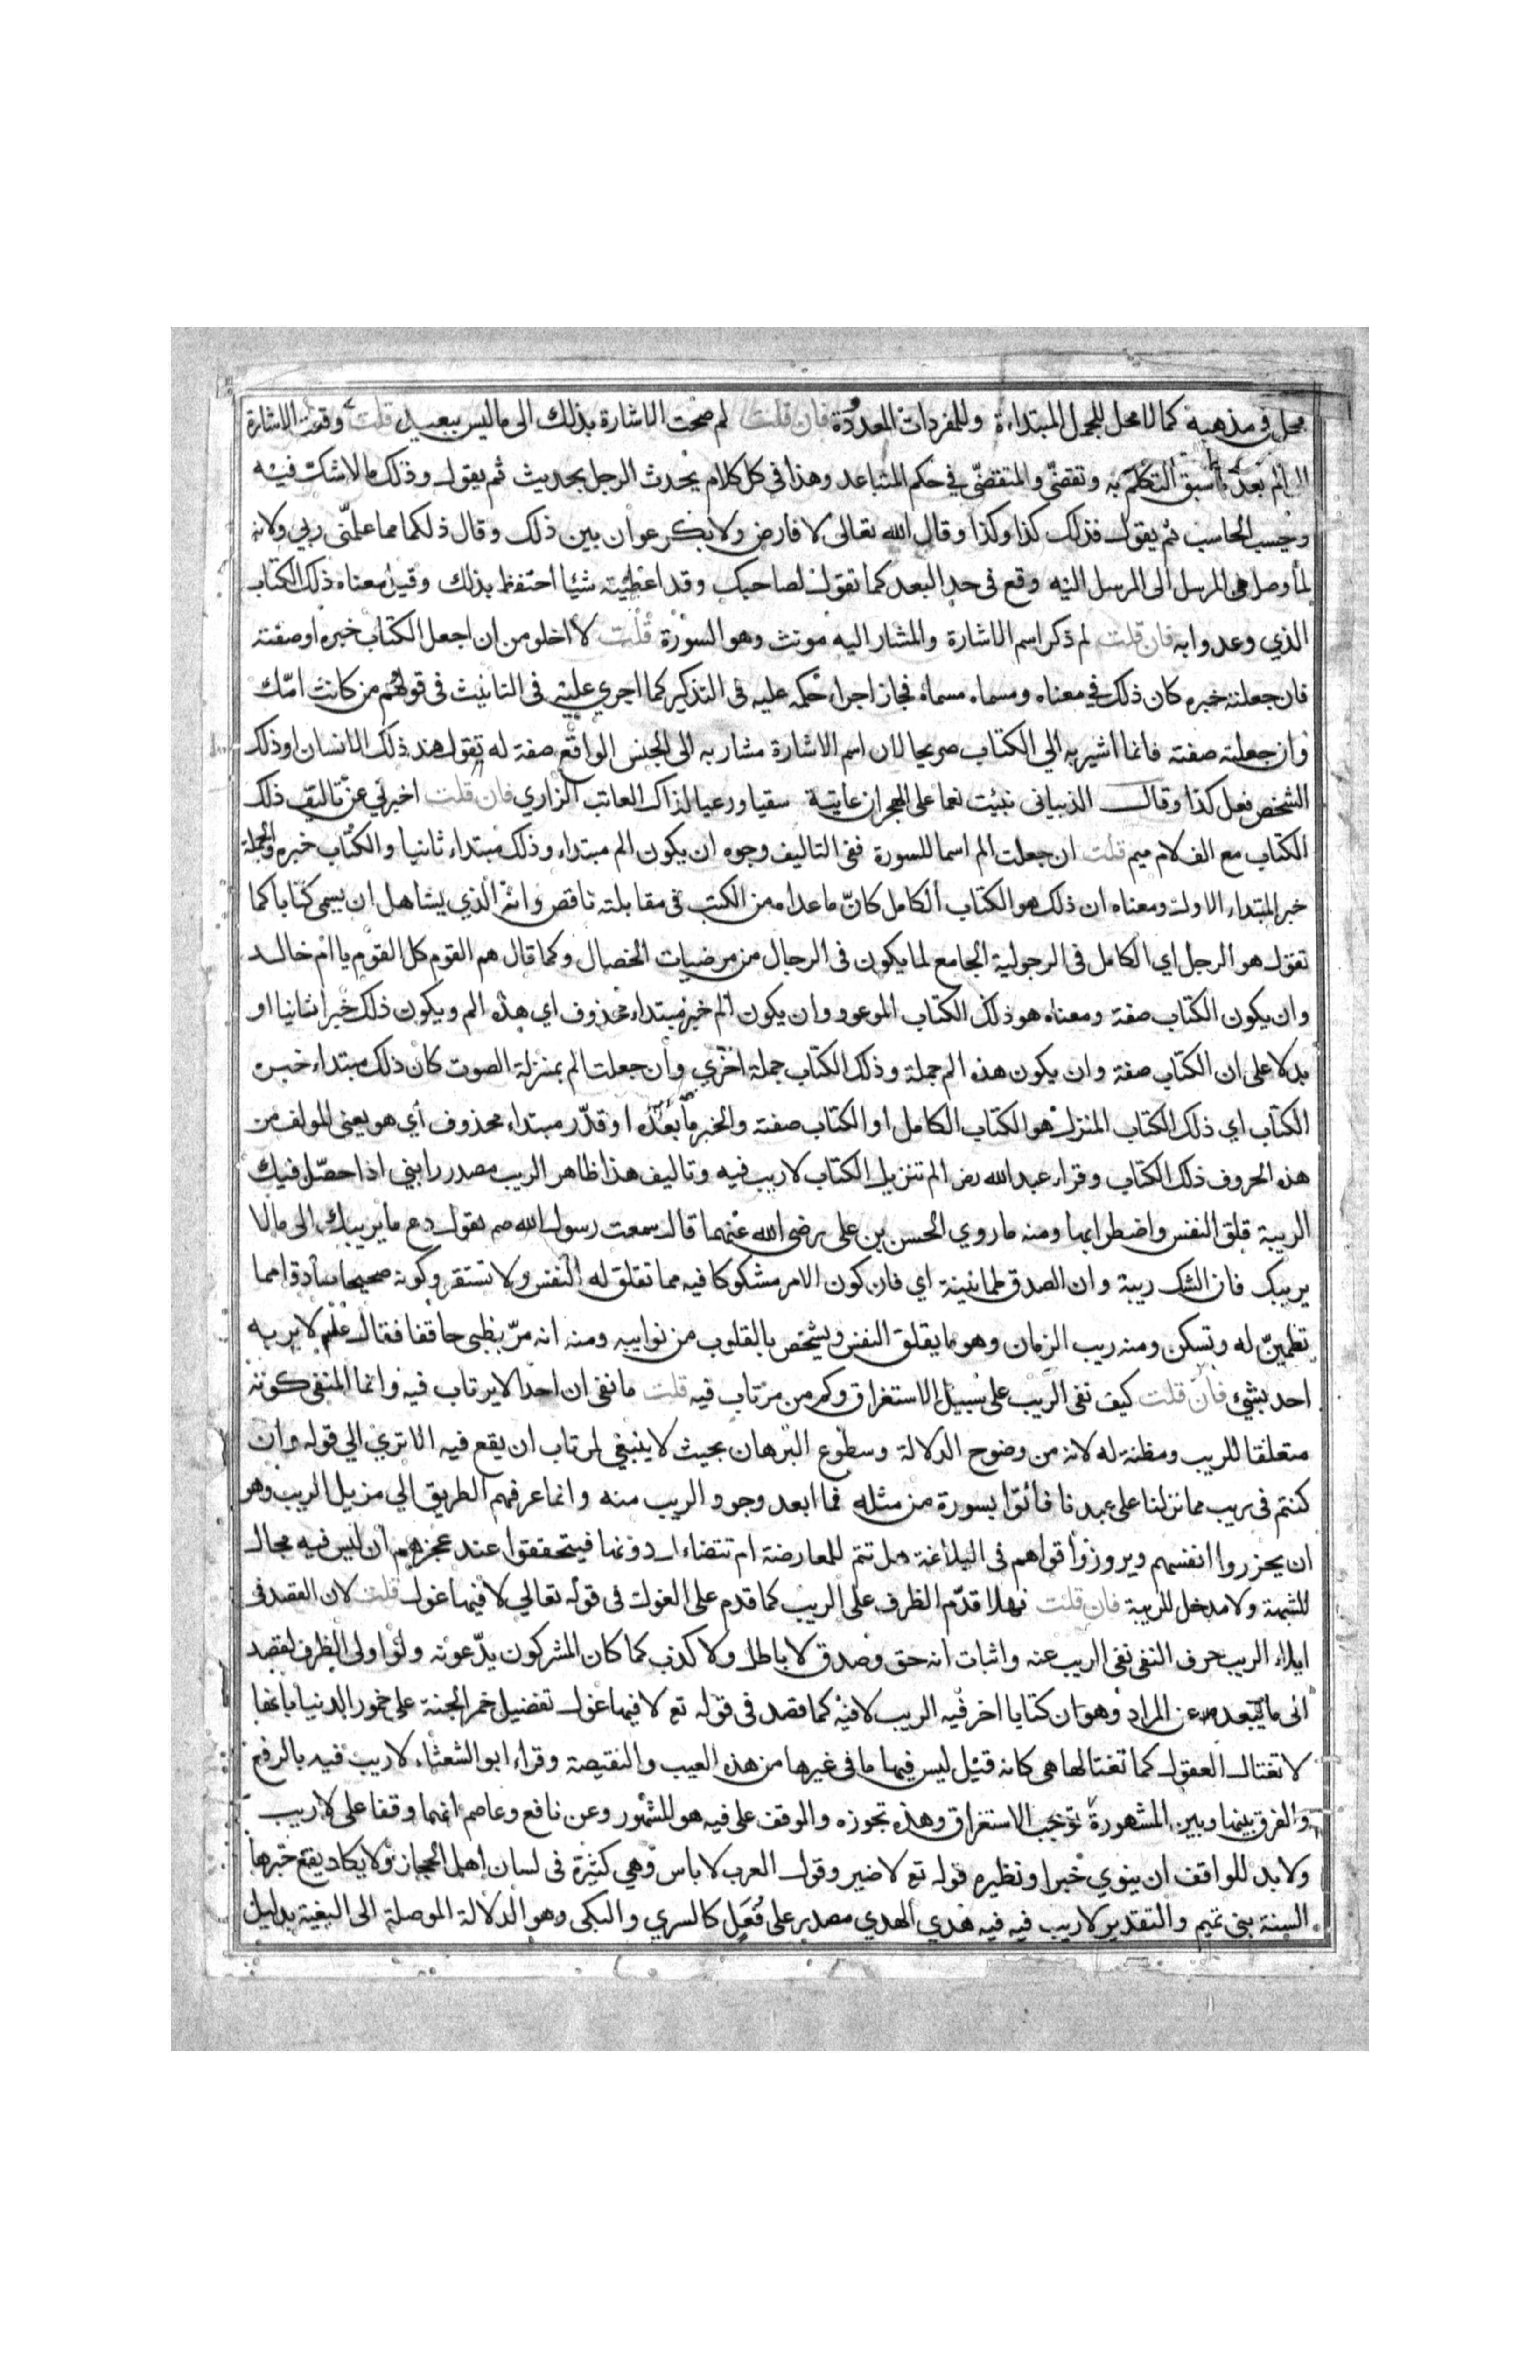 محل في مذهبه كما لا محل للجمل المبتداءة وللمفردات المعدودة فان قلت لم صحت الاشارة بذلك الى ما ليس ببعيد قلت وقعت الاشارة
الى الم بعد ما سبق التكلم به وتقضّى والمتقضّى في حكم المتباعد وهذا في كل كلام يحدث الرجل بحديث ثم يقول وذلك ما لا شك فيه
وحسب الحاسب ثم يقول فذلك كذا وكذا وقال الله تعالى لا فارض ولا بكر عوان بين ذلك وقال ذلكما مما علمنى ربي ولانه
لما وصل من المرسل الى المرسل اليه وقع في حد البعد كما تقول لصاحبك وقد اعطيته شيئا احتفظ بذلك وقيل معناه ذلك الكتاب
الذي وعدوا به فان قلت لم ذكر اسم الاشارة والمشار اليه مونث وهو السورة قلت لا اخلو من ان اجعل الكتاب خبره او صفته
فان جعلته خبره كان ذلك في معناه ومسماه مسماه فجاز اجراء حكمه عليه في التذكير كما اجري عليه في التانيث في قولهم من كانت امّك
وان جعلته صفته فانما اشير به الي الكتاب صريحا لان اسم الاشارة مشار به الى الجنس الواقع صفة له تقول هند ذلك الانسان او ذلك
الشخص فعل كذا وقال الذبياني نبئت نعما على الهجران عاتبة سقيا ورعيا لذاك العاتب الزاري فان قلت اخبرني عن تاليف ذلك
الكتاب مع الف لام ميم قلت ان جعلت الم اسما للسورة ففي التاليف وجوه ان يكون الم مبتداء وذلك مبتداء ثانيا والكتاب خبره والجملة
خبر المبتداء الاول ومعناه ان ذلك هو الكتاب الكامل كانّ ما عداه من الكتب في مقابلته ناقص وانه الذي يستاهل ان يسمى كتابا كما
تقول هو الرجل اي الكامل في الرجولية الجامع لما يكون في الرجال من مرضيات الخصال وكما قال هم القوم كل القوم يا ام خالد
وان يكون الكتاب صفة ومعناه هو ذلك الكتاب الموعود وان يكون الم خبر مبتداء محذوف اي هذه الم ويكون ذلك خبرا ثانيا او
بدلا على ان الكتاب صفة وان يكون هذه الم جملة وذلك الكتاب جملة اخري وان جعلت الم بمنزلة الصوت كان ذلك مبتداء خبره
الكتاب اي ذلك الكتاب المنزل هو الكتاب الكامل او الكتاب صفة والخبر ما بعده او قدّر مبتداء محذوف اي هو يعني المولف من
هذه الحروف ذلك الكتاب وقراء عبد الله رض الم تنزيل الكتاب لا ريب فيه وتاليف هذا ظاهر الريب مصدر رابني اذا حصّل فيك
الريبة قلق النفس واضطرابها ومنه ما روي الحسن بن على رضى الله عنهما قال سمعت رسول الله صم يقول دع ما يريبك الى ما لا
يريبك فان الشك ريبة وان الصدق طمانينة اي فان كون الامر مشكوكا فيه مما تقلق له النفس ولا تستقر وكونه صحيحا صادقا مما
تطمينّ له وتسكن ومنه ريب الزمان وهو ما يقلق النفس ويشخص بالقلوب من نوايبه ومنه انه مرّ بظبى حاقف فقال لا يربه
احد بشئ فان قلت كيف نفى الريب على سبيل الاستغراق وكم من مرتاب فيه قلت ما نفى ان احدا لا يرتاب فيه وانما المنفى كونه
متعلقا للريب ومظنة له لانه من وضوح الدلالة وسطوع البرهان بحيث لا ينبغي لمرتاب ان يقع فيه الا تري الي قوله وان
كنتم في ريب مما نزلنا على عبدنا فاتوا بسورة من مثله فما ابعد وجود الريب منه وانما عرفهم الطريق الي مزيل الريب وهو
ان يحزروا انفسهم ويروزوا قواهم في البلاغة هل تتم للمعارضة ام تتضاءل دونها فيتحققوا عند عجزهم ان ليس فيه مجال
للشبهة ولا مدخل للريبة فان قلت فهلا قدّم الظرف على الريب كما قدم على الغول في قوله تعالي لا فيها غول قلت لان القصد في
ايلاء الريب حرف النفي نفى الريب عنه واثبات انه حق وصدق لا باطل ولا كذب كما كان المشركون يدّعونه ولو اولى الظرف لقصد
الى ما يبعد عن المراد وهو ان كتابا اخر فيه الريب لا فيه كما قصد في قوله تع لا فيها غول تفضيل خمر الجنة على خمور الدنيا بانها
لا تغتال العقول كما تغتالها هي كانه قيل ليس فيها ما في غيرها من هذه العيب والنقيصة وقراء ابو الشعثاء لا ريب فيه بالرفع
والفرق بينها وبين المشهورة توجب الاستغراق وهذه تجوزه والوقف على فيه هو المشهور وعن نافع وعاصم انهما وقفا على لا ريب
ولا بد للواقف ان ينوي خبرا ونظيره قوله تع لا ضير وقول العرب لا باس وهي كثيرة في لسان اهل الحجاز ولا يكاد يقع خبرها
السنة بنى تميم والتقدير لا ريب فيه فيه هدي الهدي مصدر على فُعَل كالسري والبكى وهو الدلالة الموصلة الى البغية بدليل